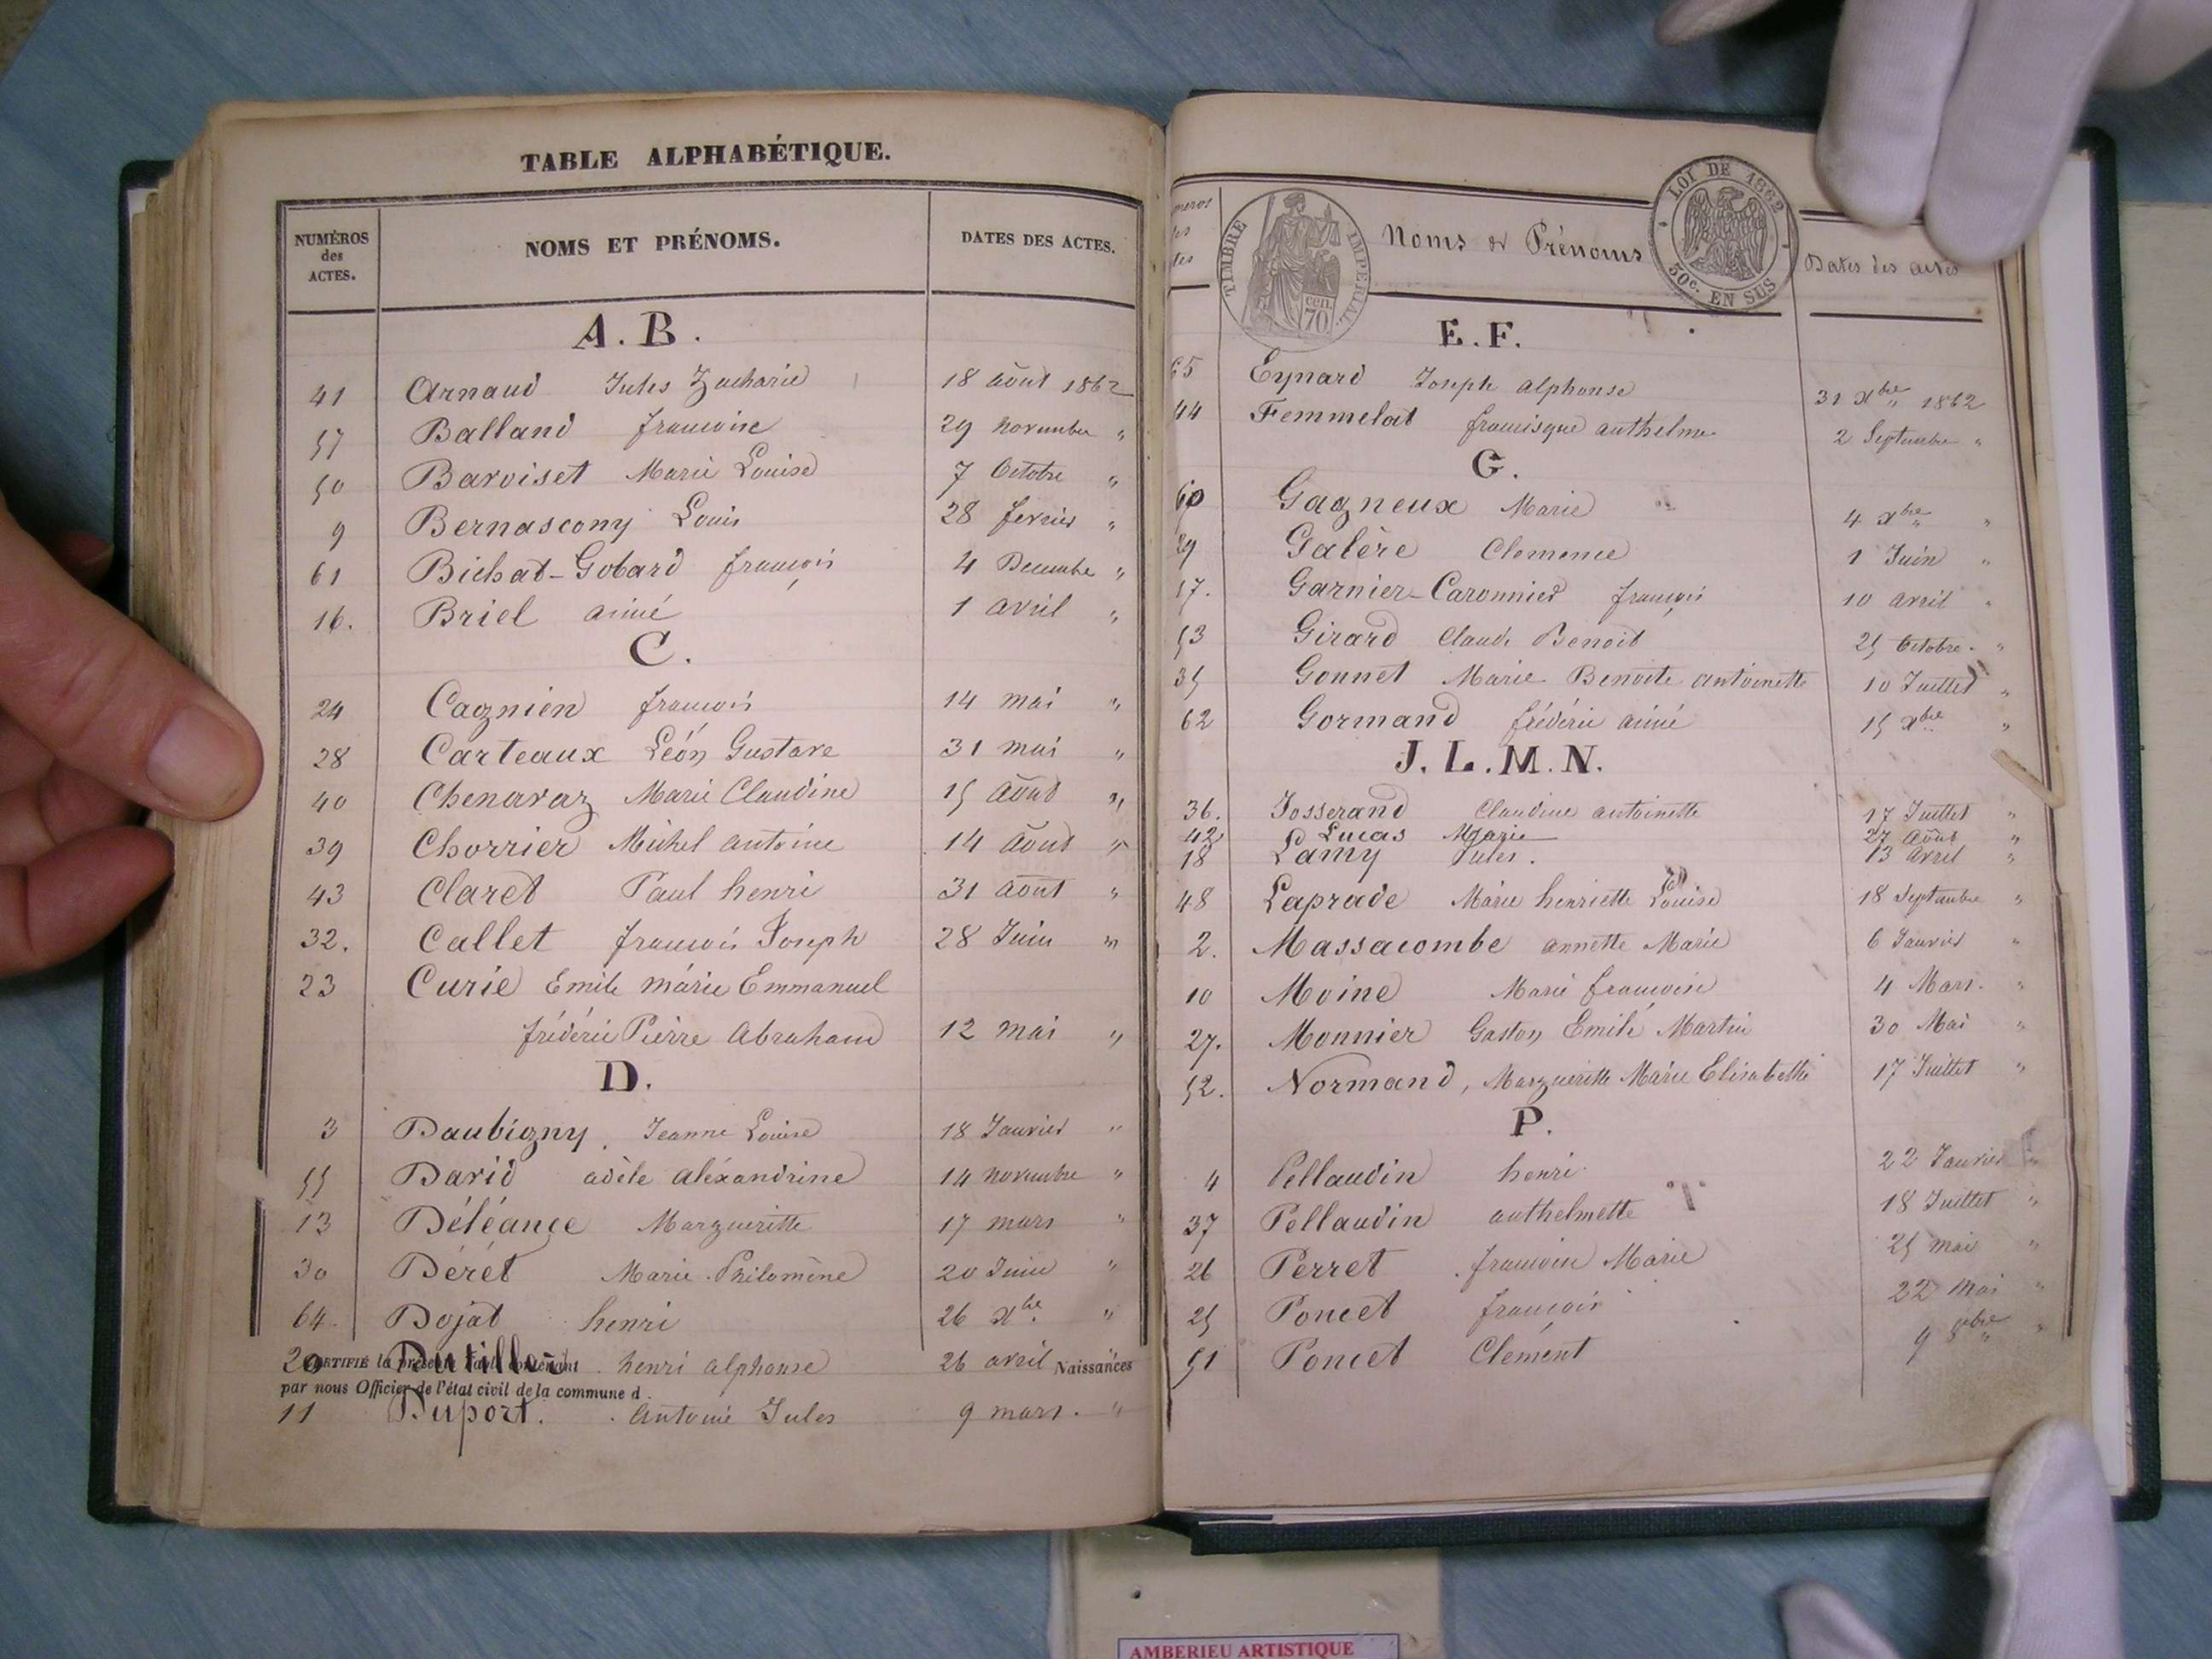 TABLE ALPHABÉTIQUE.
NUMÉROS des ACTES. NOMS ET PRÉNOMS. DATES DES ACTES.
A. B.
41 Arnaud Jules Zacharie 18 août 1862
57 Balland françoise 29 novembre "
50 Barviset Marie Louise 7 Octobre "
9 Bernascony Louis 28 fevrier "
61 Bichat-Gobard françois 4 Decembre "
16. Briel aimé 1 avril "
C.
24 Cagnien françois 14 mai "
28 Carteaux Léon Gustave 31 mai "
40 Chenavaz Marie Claudine 15 août "
39 Chorrier Michel antoine 14 août "
43 Claret Paul henri 31 août "
32. Collet françois Joseph 28 Juin "
23 Curie Emile marie Emmanuel
frédéric Pierre Abraham 12 mai "
D.
3 Daubigny Jeanne Louise 18 Janvier "
55 David adèle aléxandrine 14 novembre "
13 Déléance Margueritte 17 mars "
30 Dérét Marie Philomène 20 Juin "
64. Dojat henri 26 Xbre "
20 Dutillet henri alphonse 26 avril "
CERTIFIÉ la présente Table contenant Naissances
par nous Officier de l'état civil de la commune d
11 Duport. Antoine Jules 9 mars. "
TIMBRE IMPERIAL
cen. 70
LOI DE 1862
50c. EN SUS
Noms et Prénoms Dates des actes
E. F.
65 Eynard Joseph alphonse 31 Xbre 1862
44 Femmelat francisque anthelme 2 Septembre "
G.
60 Gagneux Marie 4 Xbre "
29 Galère Clemence 1 Juin "
17. Garnier-Caronnier françois 10 avril "
53 Girard Claude Benoit 25 Octobre. "
35 Gonnet Marie Benoite antoinette 10 Juillet "
62 Gormand frédéric aimé 15 Xbre "
J. L. M. N.
36. Josserand Claudine antoinette 17 Juillet "
42 Lucas Marie 27 Août "
18 Lamy Jules. 13 avril "
48 Laprade Marie henriette Louise 18 Septembre "
2. Massacombe annette Marie 6 Janvier "
10 Moine Marie françoise 4 Mars. "
27. Monnier Gaston Emile Martin 30 Mai "
52. Normand, Margueritte Marie Elisabeth 17 Juillet "
P.
4 Pellaudin henri 22 Janvier "
37 Pellaudin anthelmette 18 Juillet "
26 Perret françoise Marie 25 mai "
25 Poncet françois 22 mai "
51 Poncet Clément 9 8bre "
AMBERIEU ARTISTIQUE